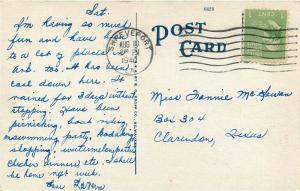 Sat.
I'm having so much
fun and have been
to a lot of places in
Ark. too. It has been
cool down here. It
rained for 3 days without
stopping. Have been
picnicking, boat riding,
swimming party, kodaking
shopping, watermelon party,
chicken dinners, etc. I shall
be home next week.
POST
CARD
SHREVEPORT
AUG 10
1940
1 CENT 1
Miss Fannie McKeown
Box 304
Clarendon,
Texas